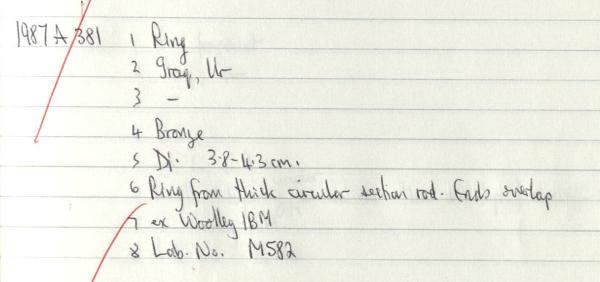 1987 A 381 1 Ring
2 Iraq, Ur
3 -
4 Bronze
5 Di. 3.8-4.3 cm.
6 Ring from thick circular section rod. Ends overlap
7 ex Woolley IBM
8 Lab. No. M582